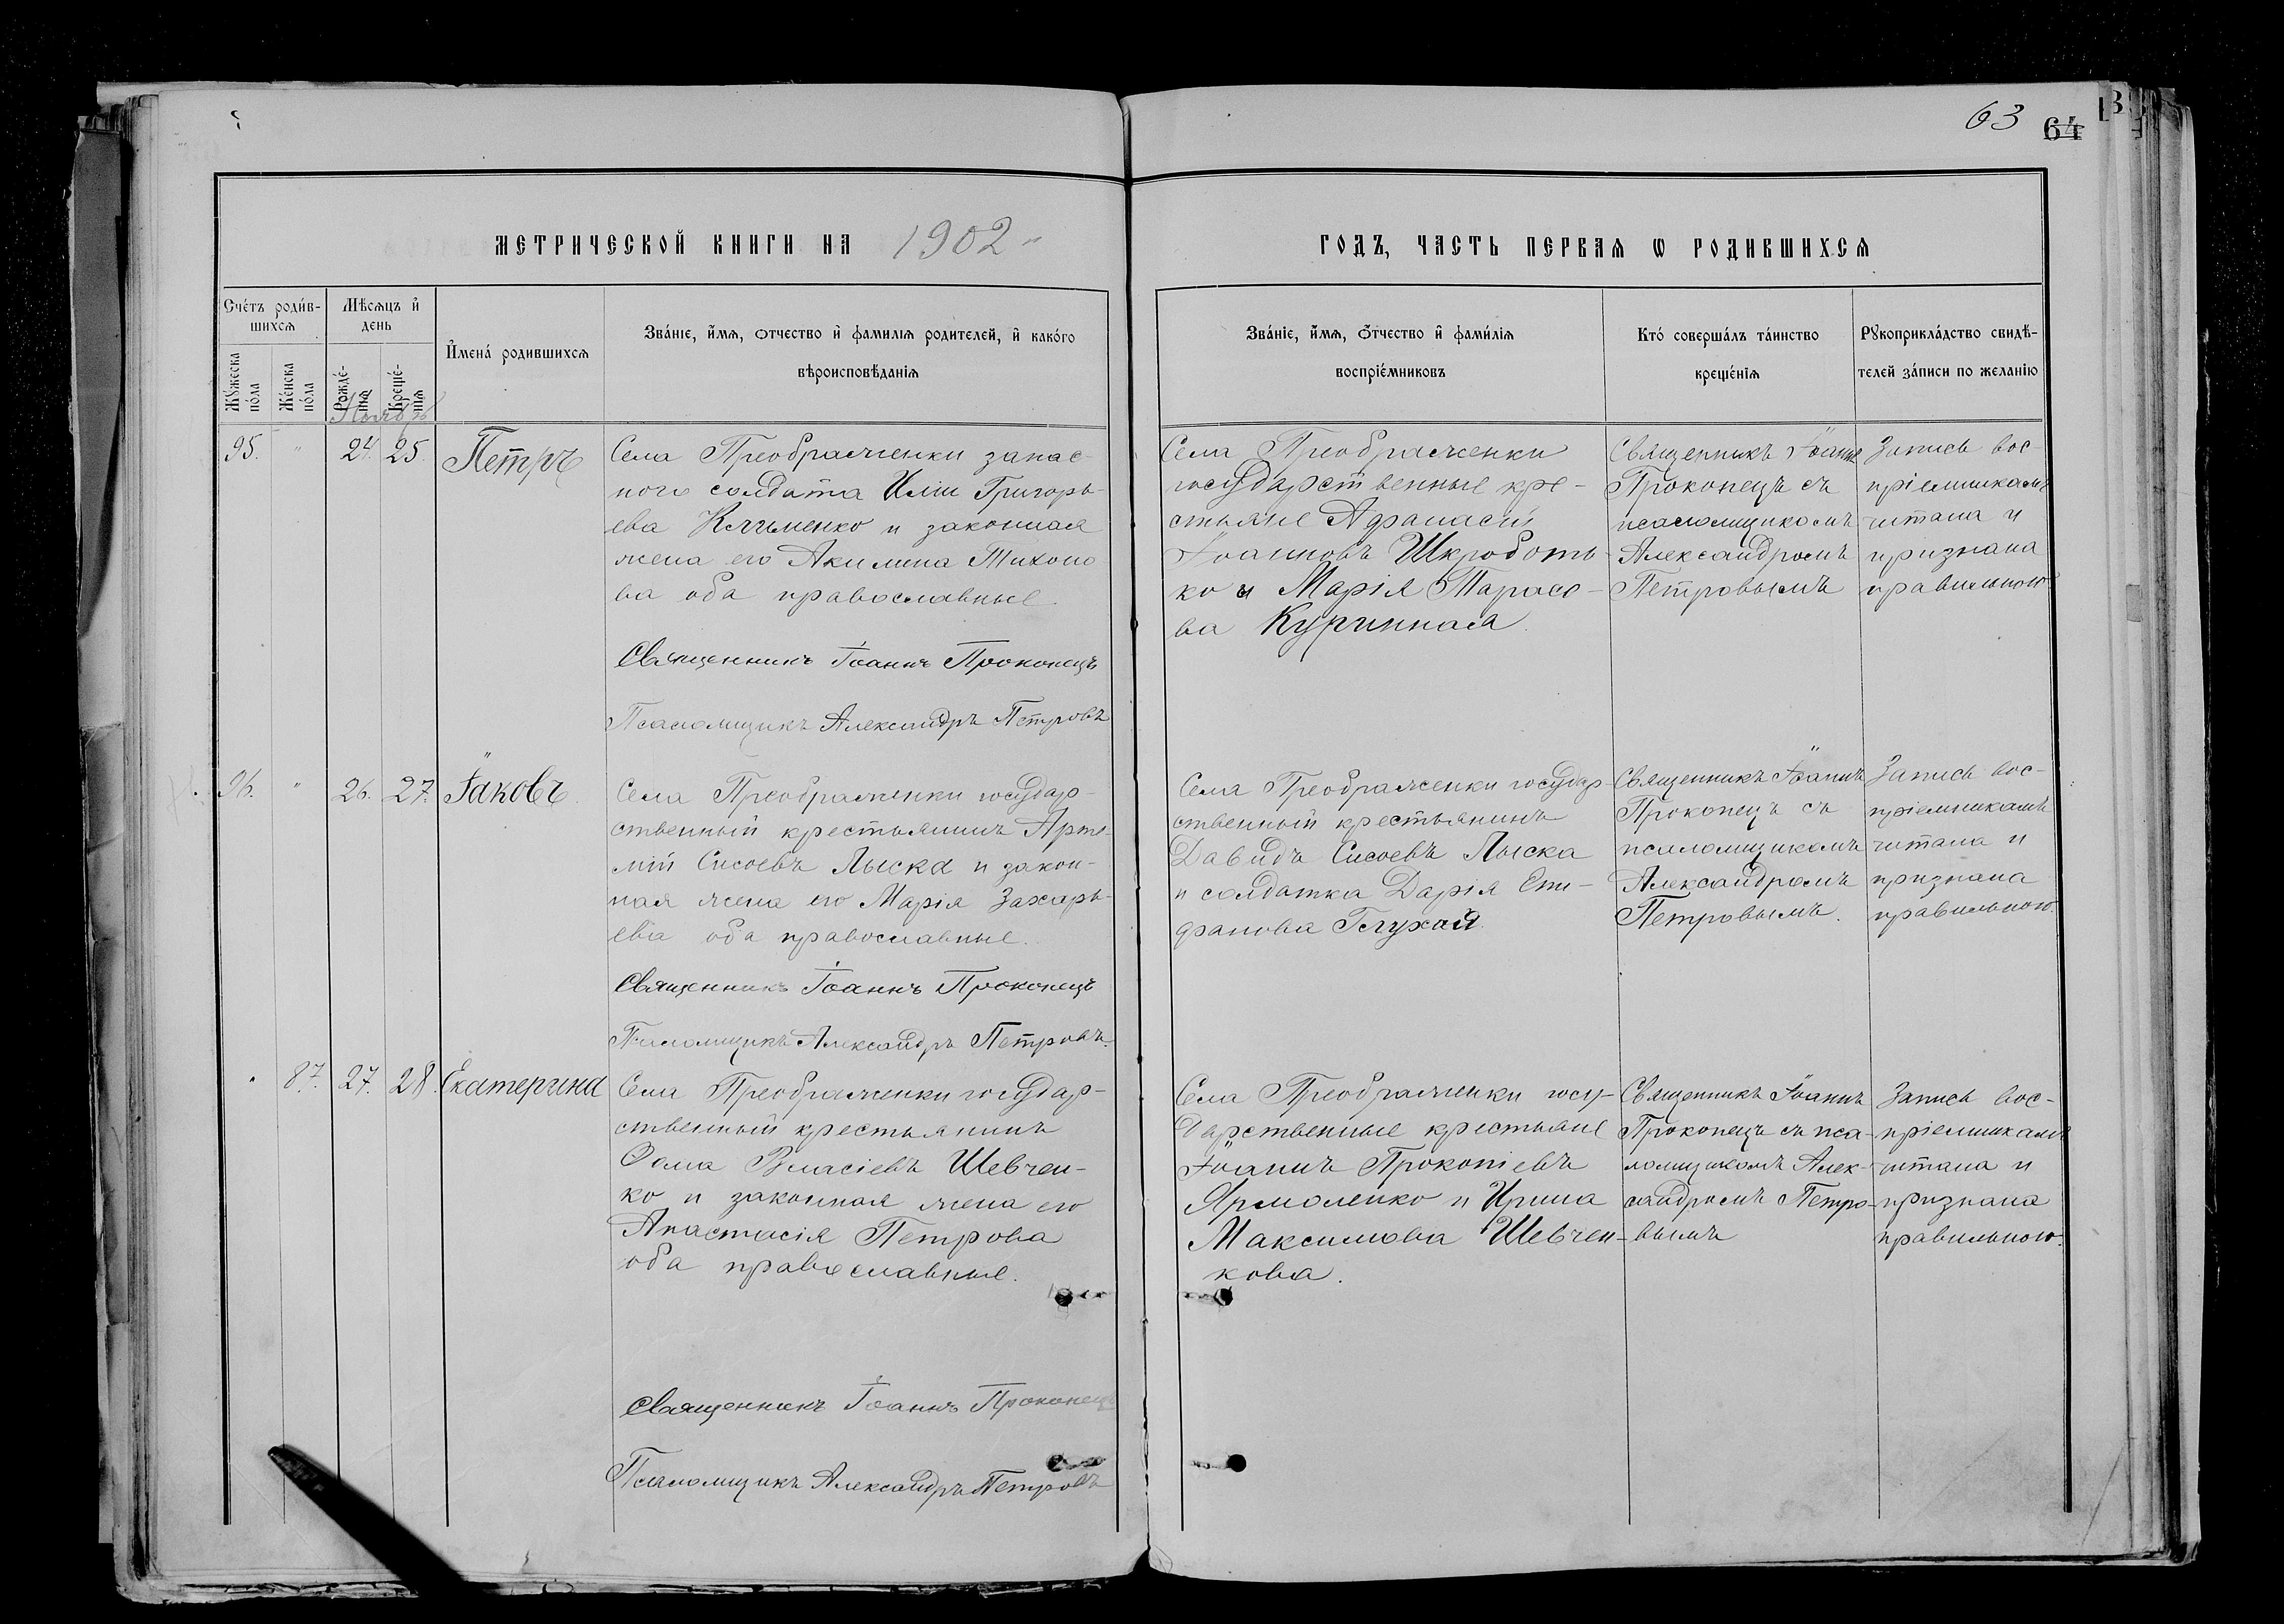 63 64
МЕТРИЧЕСКОЙ КНИГИ НА 1902 ГОДЪ, ЧАСТЬ ПЕРВАЯ Ѡ РОДИВШИХСЯ
Сче́тъ роди́в-
шихся
Мѣсяцъ и҆
день
Му́жеска
по́ла
Же́нска
по́ла
Рожде́-
нія
Креще́-
нія
И҆мена́ родившихся
Зва́ніе, и҆́мя, ѻтчество и҆ фамилія родителей, и҆ како́го
вѣроисповѣданія
Зва́ніе, и҆́мя, ѻ҆́тчество и҆ фами́лія
воспріе́мниковъ
Кто́ соверша́лъ та́инство
креще́нія
Рꙋкоприкла́дство свидѣ-
телей за́писи по желанію
Ноябрь
95. " 24. 25. Петръ
Села Преображенки запас-
ного солдата Иліи Григорь-
ева Клименко и законная
жена его Акилина Тихоно
ва оба православные.
Священникъ Іоаннъ Прокопецъ
Псаломщикъ Александръ Петровъ
Села Преображенки
государственные кре-
стьяне Афанасій
Іоанновъ Шкроботь-
ко и Марія Тарасо-
ва Куринная.
Священникъ Іоаннъ
Прокопецъ съ
псаломщикомъ
Александромъ
Петровымъ
Запись вос-
пріемникамъ
читана и
признана
правильною.
96. " 26. 27. Іаковъ
Села Преображенки государ-
ственный крестьянинъ Арте-
мій Сисоевъ Лыска и закон-
ная жена его Марія Захарь-
ева оба православные.
Священникъ Іоаннъ Прокопецъ
Псаломщикъ Александръ Петровъ.
Села Преображенки государ-
ственный крестьянинъ
Давидъ Сисоевъ Лыска
и солдатка Дарія Епи-
фанова Глухая.
Священникъ Іоаннъ
Прокопецъ съ
псаломщикомъ
Александромъ
Петровымъ.
Запись вос-
пріемникамъ
читана и
признана
правильною.
" 87. 27. 28. Екатерина
Села Преображенки государ-
ственный крестьянинъ
Ѳома Власіевъ Шевчен-
ко и законная жена его
Анастасія Петрова
оба православные.
Священникъ Іоаннъ Прокопецъ
Псаломщикъ Александръ Петровъ
Села Преображенки госу-
дарственные крестьяне
Іоаннъ Прокопіевъ
Ярмоленко и Ирина
Максимова Шевчен-
кова.
Священникъ Іоаннъ
Прокопецъ съ пса-
ломщикомъ Алек-
сандромъ Петро-
вымъ
Запись вос-
пріемникамъ
читана и
признана
правильною.